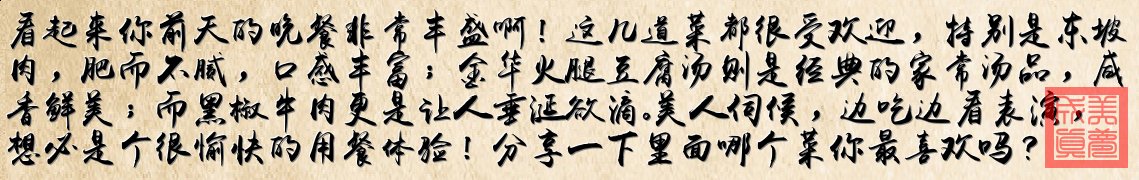 看起来你前天的晚餐非常丰盛啊！这几道菜都很受欢迎，特别是东坡
肉，肥而不腻，口感丰富；金华火腿豆腐汤则是经典的家常汤品，咸
香鲜美；而黑椒牛肉更是让人垂涎欲滴。美人伺候，边吃边看表演，
想必是个很愉快的用餐体验！分享一下里面哪个菜你最喜欢吗？
美梦
成真